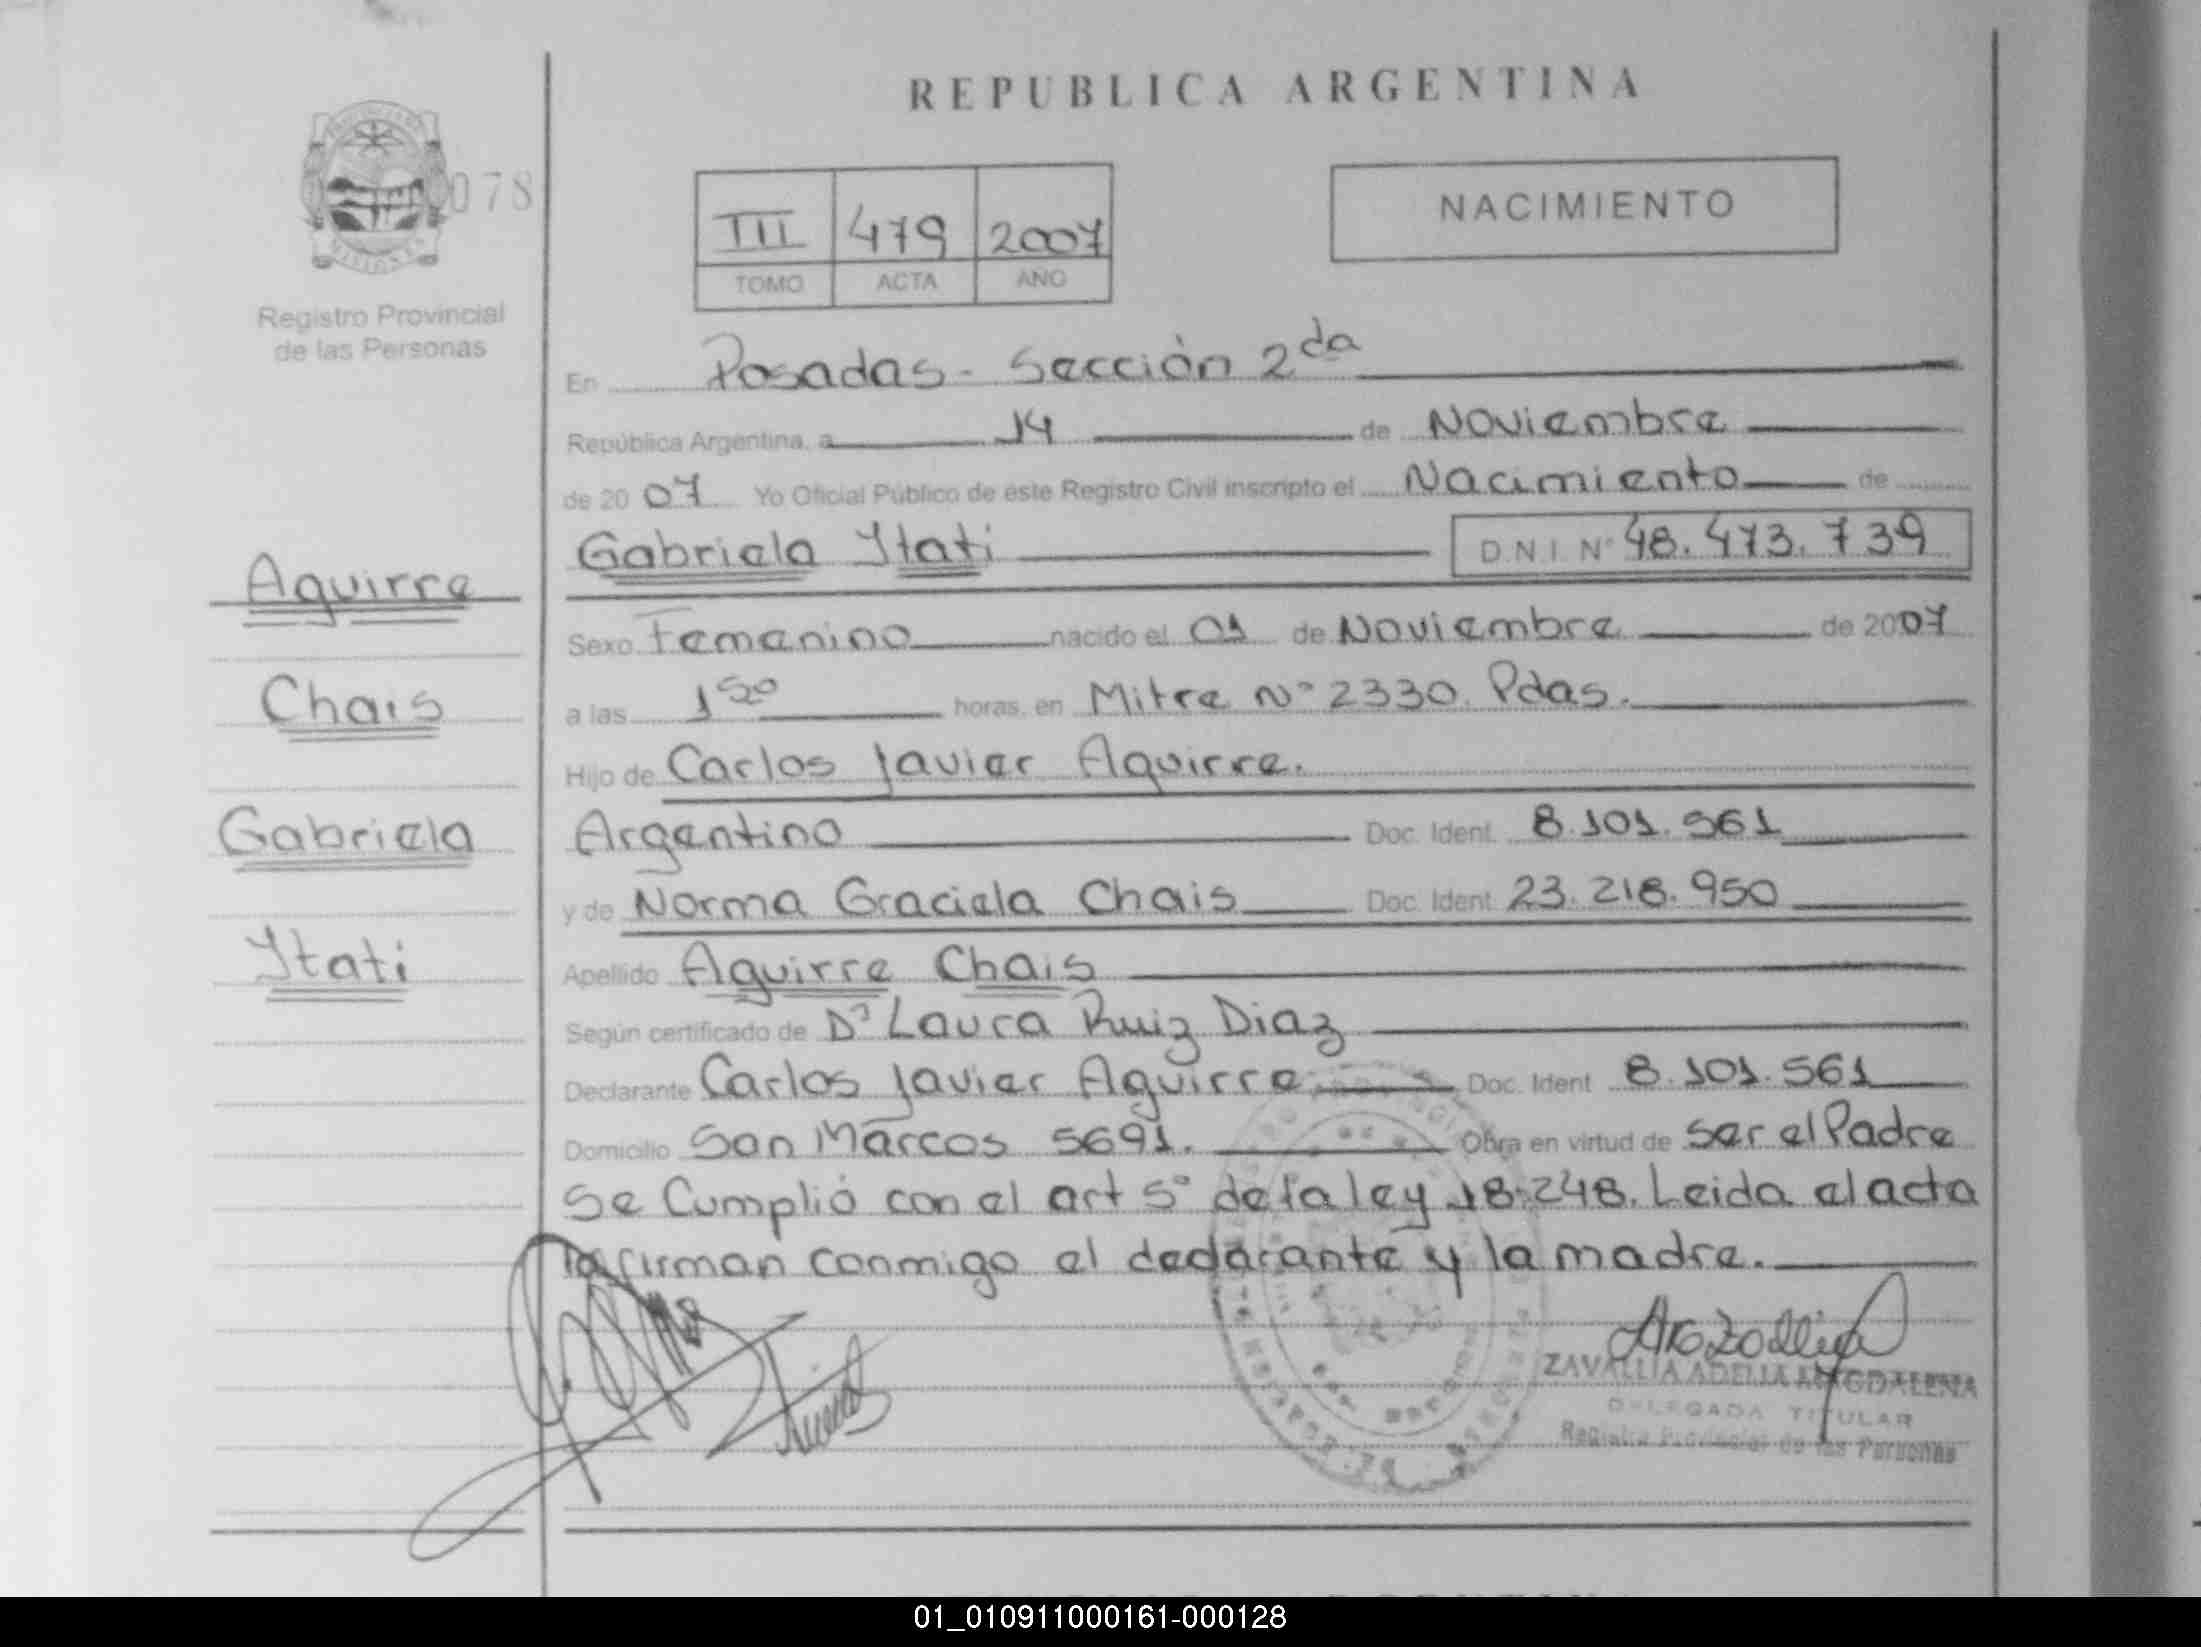 REPUBLICA ARGENTINA
078
III 479 2007
TOMO ACTA AÑO
NACIMIENTO
Registro Provincial
de las Personas
En Posadas - Sección 2da
República Argentina, a 14 de Noviembre
de 2007 Yo Oficial Público de este Registro Civil inscripto el Nacimiento de
Gabriela Itati D.N.I. Nº 48.473.739
Sexo Femenino nacido el 01 de Noviembre de 2007
a las 1 50 horas, en Mitre Nº 2330. Pdas.
Hijo de Carlos Javier Aguirre.
Argentino Doc. Ident. 8.101.561
y de Norma Graciela Chais Doc. Ident. 23.218.950
Apellido Aguirre Chais
Según certificado de Dª Laura Ruiz Diaz
Declarante Carlos Javier Aguirre Doc. Ident. 8.101.561
Domicilio San Marcos 5691. Obra en virtud de ser el Padre
Se Cumplió con el art 5º de la ley 18.248. Leida el acta
la firman conmigo el declarante y la madre.
Aguirre
Chais
Gabriela
Itati
ZAVALLIA ADELIA MAGDALENA
DELEGADA TITULAR
Registro Provincial de las Personas
01_010911000161-000128